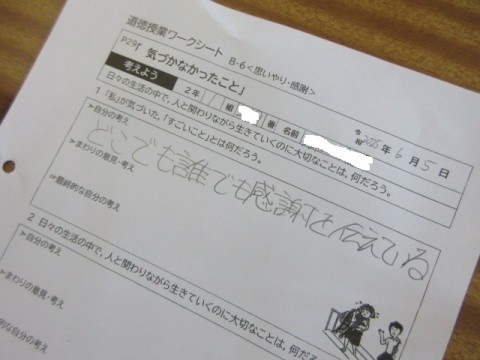 道徳授業ワークシート B-6<思いやり・感謝>
P29「気づかなかったこと」
2年 組 番 名前 令和 2025年6月5日
考えよう
日々の生活の中で、人と関わりながら生きていくのに大切なことは、何だろう。
1 「私」が気づいた、「すごいこと」とは何だろう。
➢自分の考え
どこでも誰でも感謝を伝えている
➢まわりの意見・考え
or最終的な自分の考え
2 日々の生活の中で、人と関わりながら生きていくのに大切なことは、何だろ
➢自分の考え
➢まわりの意見・考え
的な自分の考え